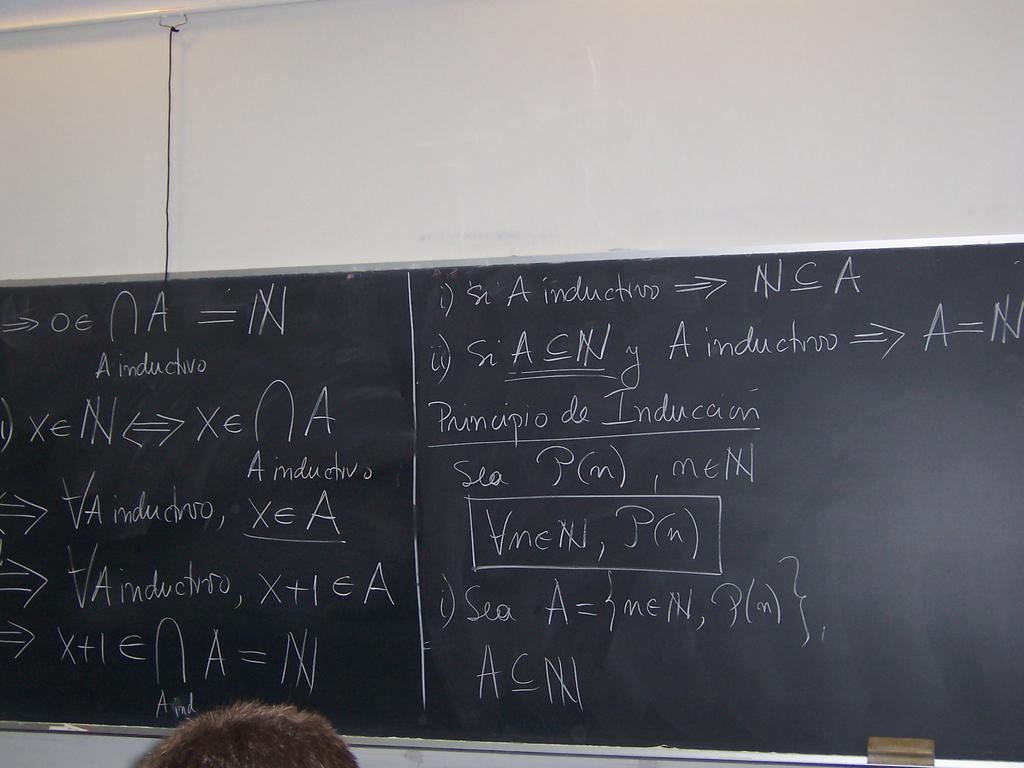 ⇒ 0 ∈ ⋂ A = ℕ
A inductivo
i) x ∈ ℕ ⇔ x ∈ ⋂ A
A inductivo
⇔ ∀A inductivo, x ∈ A
⇒ ∀A inductivo, x+1 ∈ A
⇒ x+1 ∈ ⋂ A = ℕ
A ind
i) Si A inductivo ⇒ ℕ ⊆ A
ii) Si A ⊆ ℕ y A inductivo ⇒ A = ℕ
Principio de Inducción
Sea P(n), n ∈ ℕ
∀n ∈ ℕ, P(n)
i) Sea A = {n ∈ ℕ, P(n)},
A ⊆ ℕ